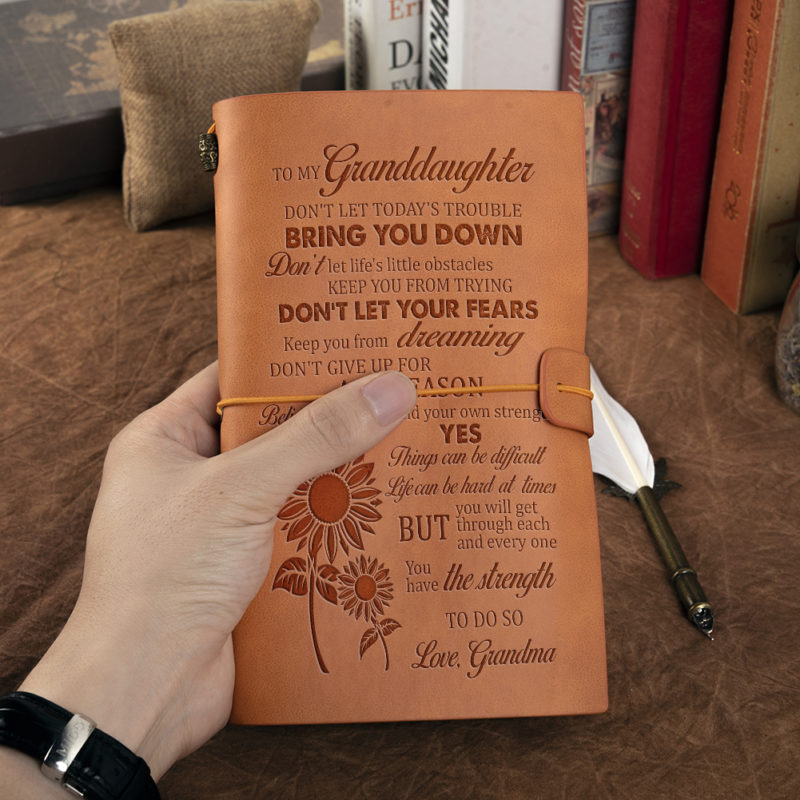 TO MY Granddaughter
DON'T LET TODAY'S TROUBLE
BRING YOU DOWN
Don't let life's little obstacles
KEEP YOU FROM TRYING
DON'T LET YOUR FEARS
Keep you from dreaming
DON'T GIVE UP FOR
your own
YES
Things can be difficult
Life can be hard at times
BUT you will get
through each
and every one
You
have the strength
TO DO SO
Love, Grandma